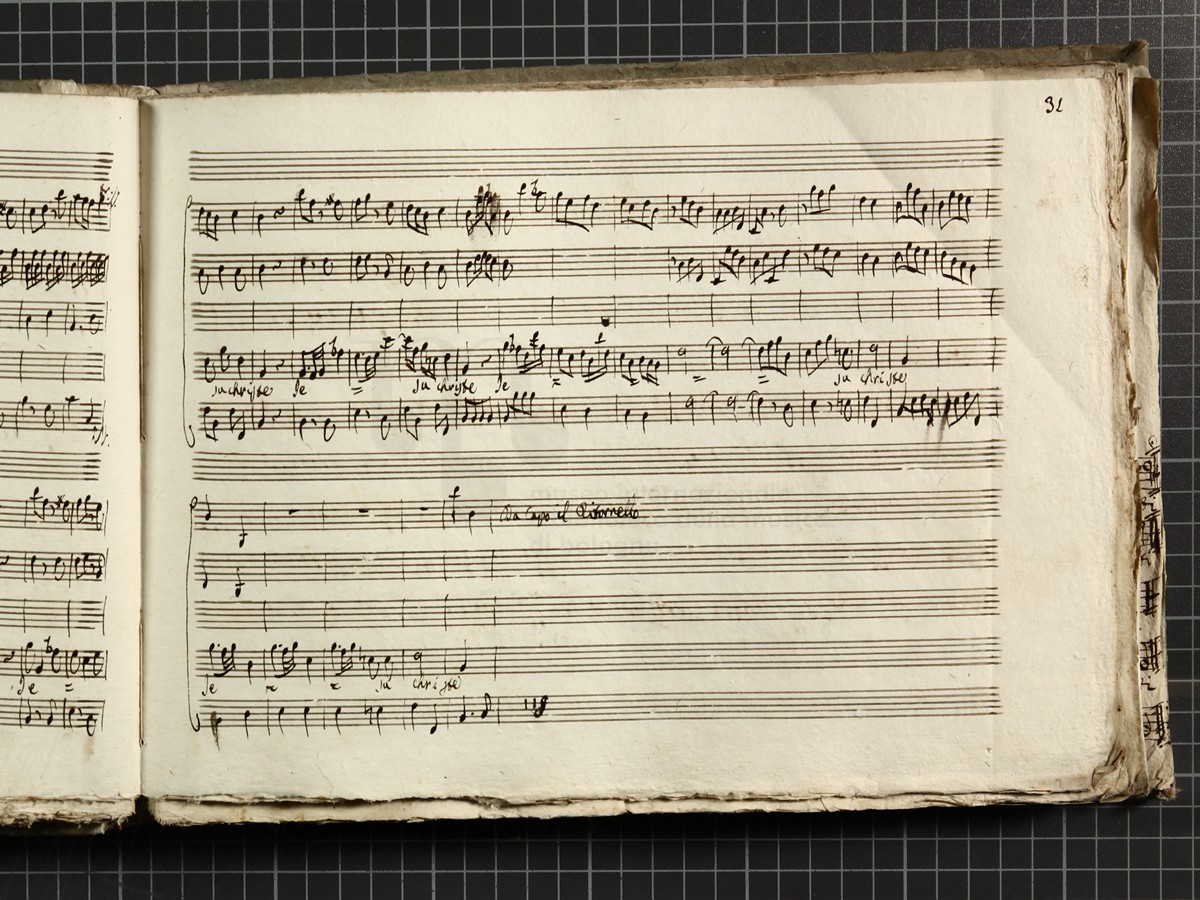 31
su christe Je = su christe Je = = su christe
Da Capo il Ritornello
Je =
Je = = su christe